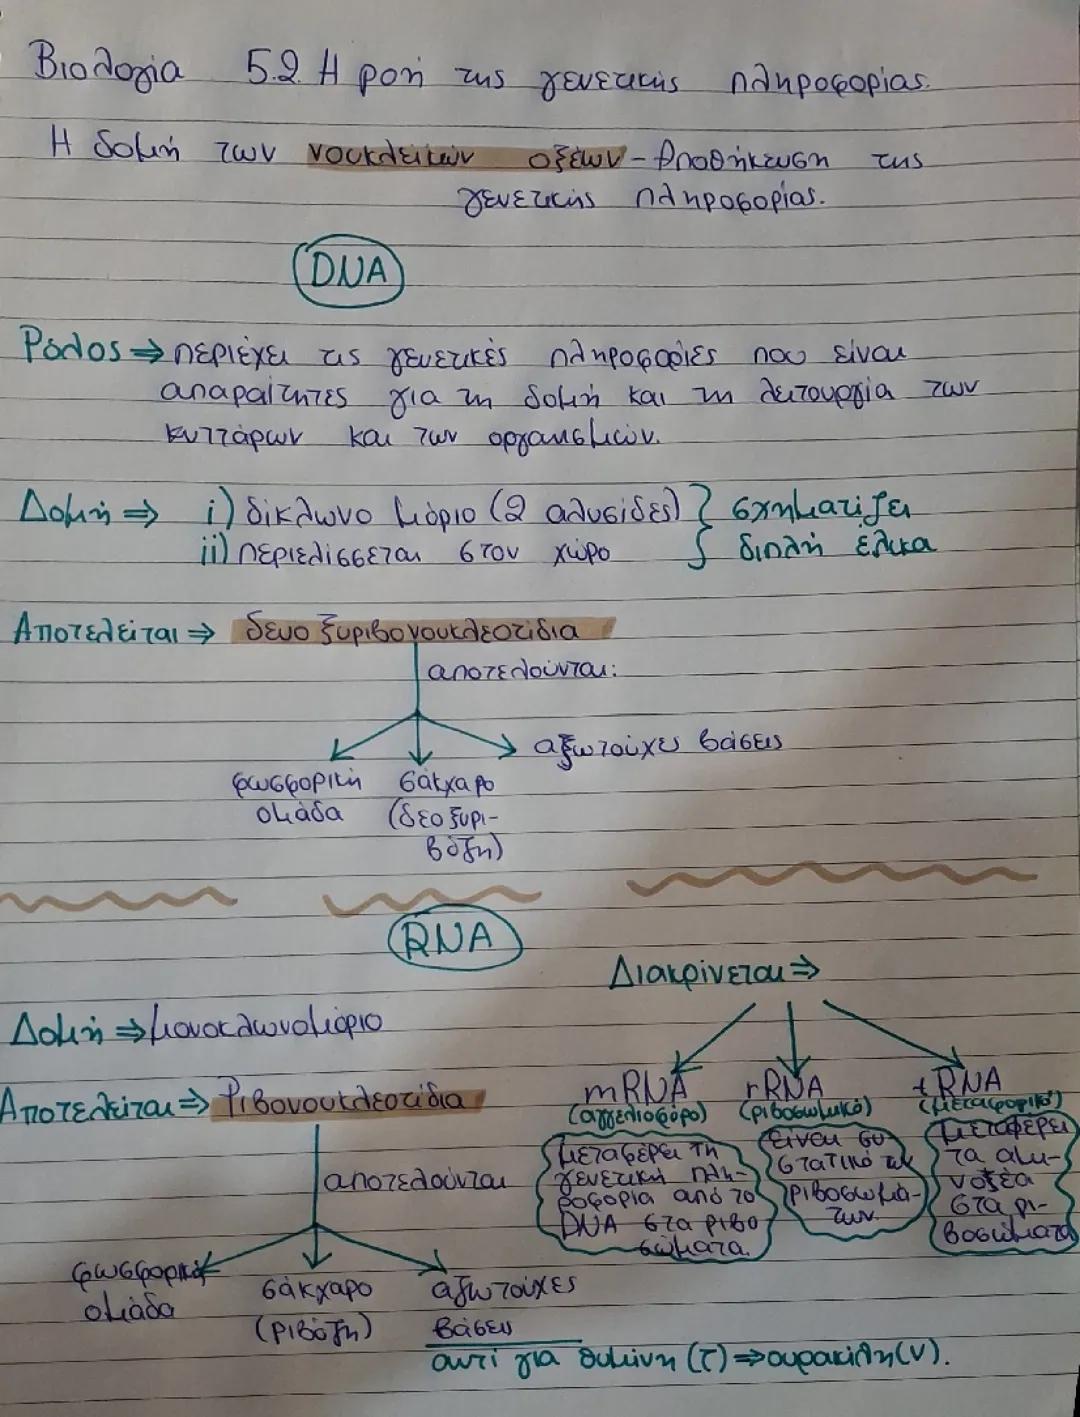 Βιολογία 5.2 Η ροή της γενετικής πληροφορίας.
Η δομή των νουκλεϊκών οξέων - Αποθήκευση της
γενετικής πληροφορίας.
DNA
Ρόλος ⇒ περιέχει τις γενετικές πληροφορίες που είναι
απαραίτητες για τη δομή και τη λειτουργία των
κυττάρων και των οργανισμών.
Δομή ⇒ i) δίκλωνο μόριο (2 αλυσίδες) } σχηματίζει
ii) περιελίσσεται στον χώρο } διπλή έλικα
Αποτελείται ⇒ δευοξυριβονουκλεοτίδια
αποτελούνται:
αζωτούχες βάσεις
φωσφορική σάκχαρο
ομάδα (δεοξυρι-
βόζη)
RNA
Διακρίνεται ⇒
Δομή ⇒ μονοκλωνομόριο
mRNA rRNA tRNA
Αποτελείται ⇒ Ριβονουκλεοτίδια
(αγγελιοφόρο) (ριβοσωμικό) (μεταφορικό)
μεταφέρει τη
γενετική πλη-
ροφορία από το
DNA στα ριβο
σώματα.
είναι συ
στατικό των
ριβοσωμά-
των.
μεταφέρει
τα αμι-
νοξέα
στα ρι-
βοσώματα
αποτελούνται
φωσφορική σάκχαρο αζωτούχες
ομάδα (ριβόζη) βάσεις
αντί για θυμίνη (Τ) ⇒ ουρακίλη (υ).